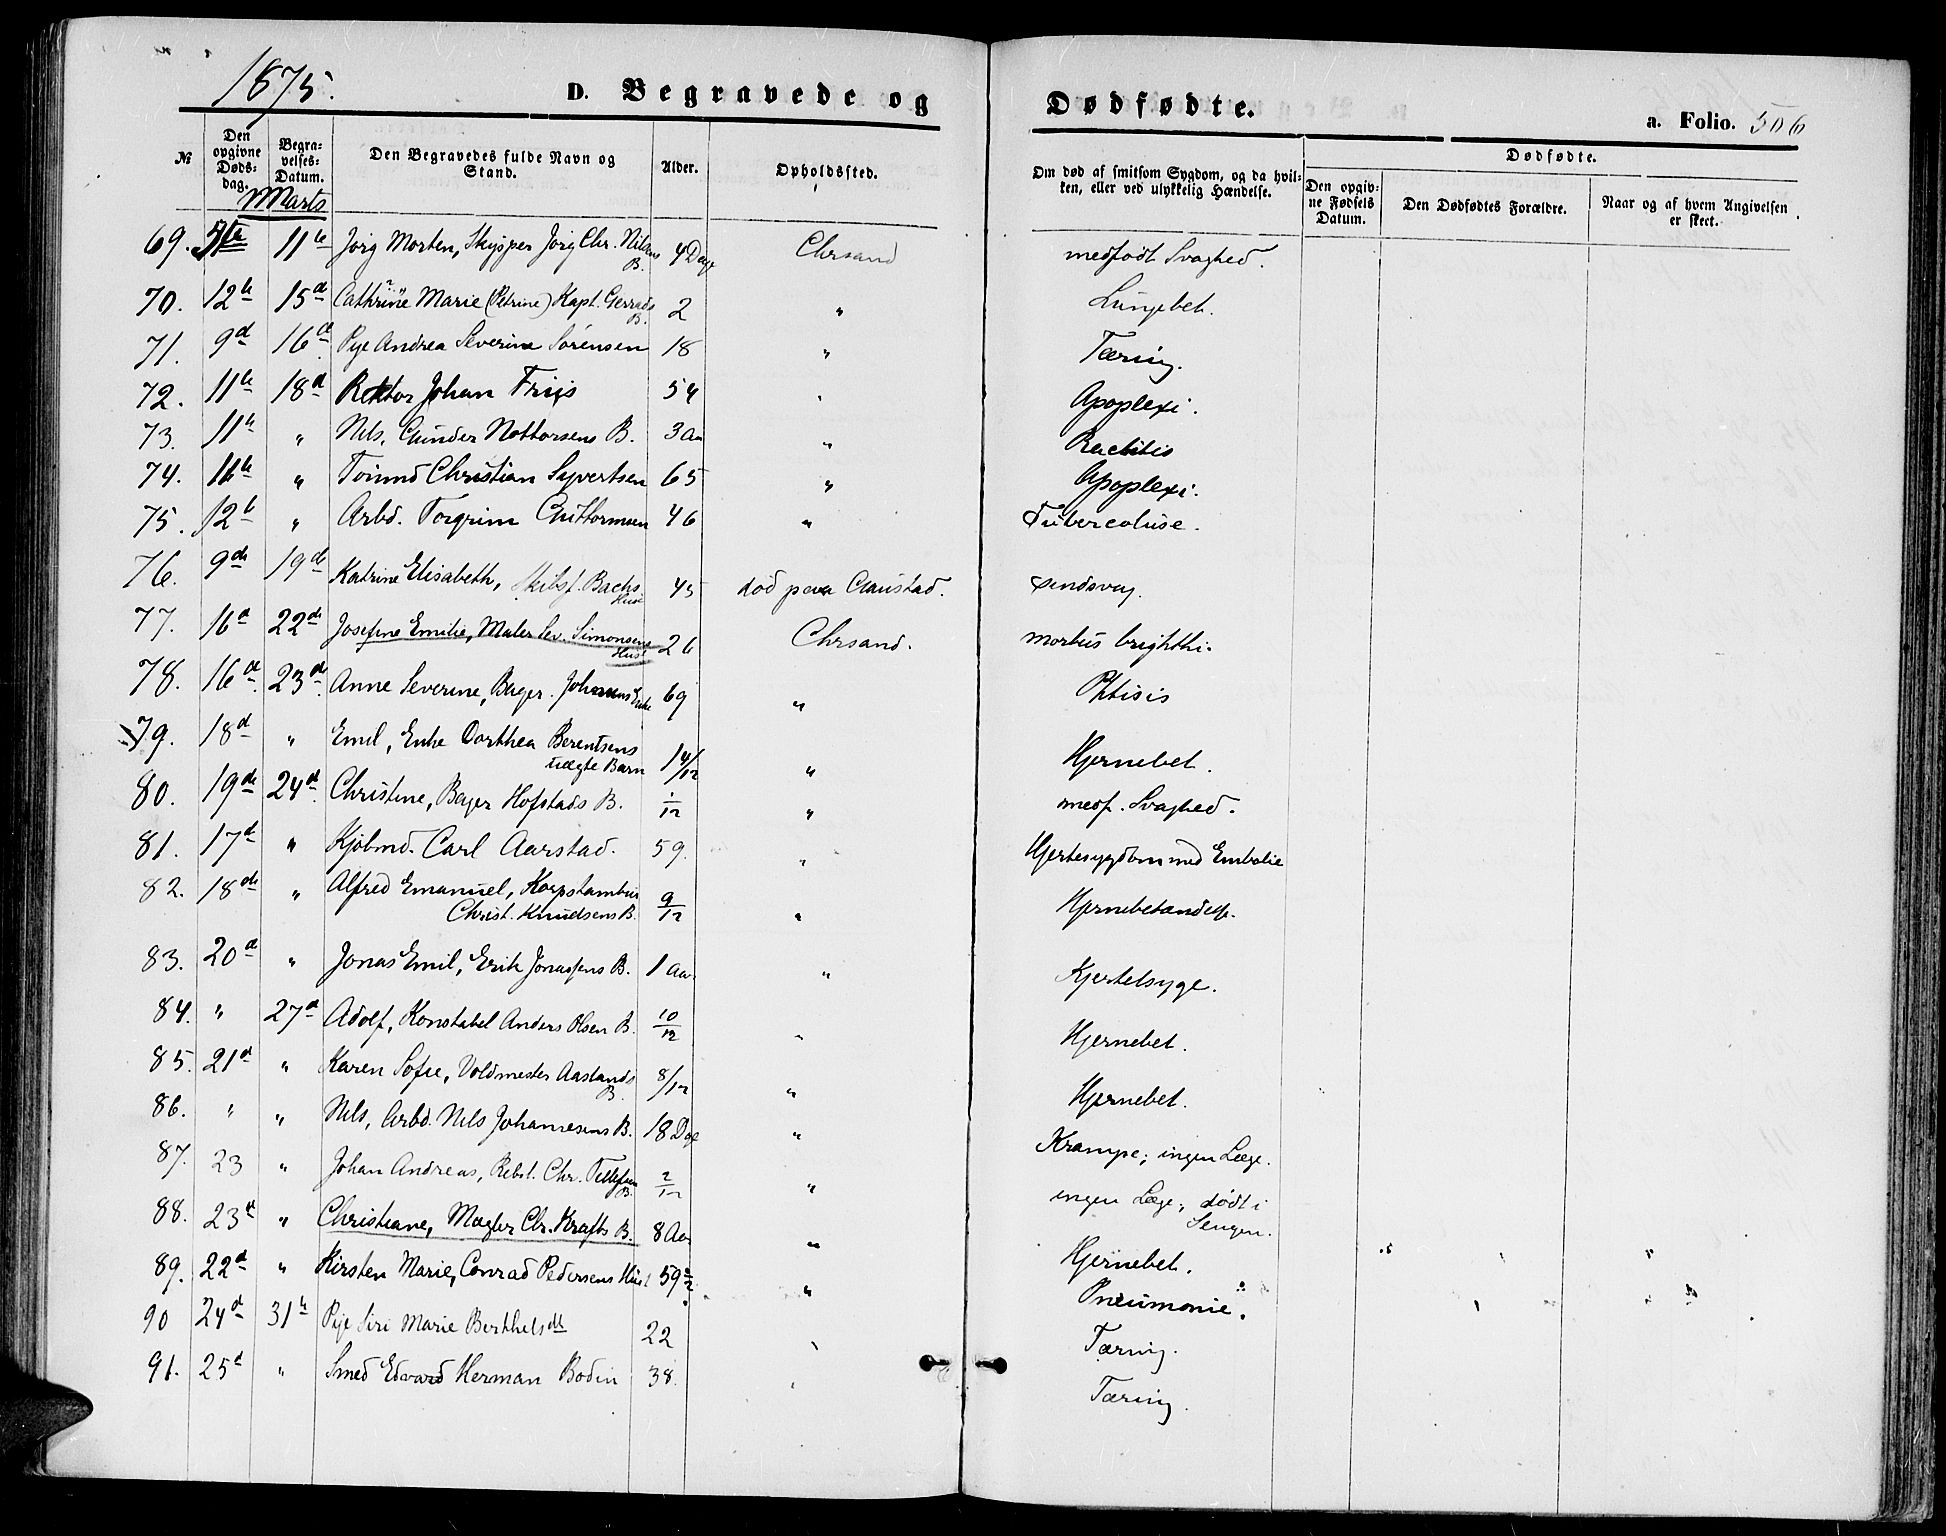 1875.
D. Begravede og Dødfødte.
a. Folio. 506
№ | Den opgivne Døds-dag. | Begra-velses-Datum. | Den Begravedes fulde Navn og Stand. | Alder. | Opholdssted. | Om død af smitsom Sygdom, og da hvil-ken, eller ved ulykkelig Hændelse. | Dødfødte. | Den opgiv-ne Fødsels Datum. | Den Dødfødtes Forældre. | Naar og af hvem Angivelsen er skeet.
Marts
69. 11te Jørg Morten, Skipper Jørg Chr. Nilsens B. 4 Dage Chrsand medfødt Svaghed.
70. 12te 15de Cathrine Marie (Petrine) Kapt. Gerrads B. 2 " Lungebet.
71. 9de 16de Pige Andrea Severine Sørensen 18 " Tæring.
72. 11te 18de Rektor Johan Friis 54 " Apoplexi.
73. 11te " Nils, Gunder Nottorsens B. 3 Aar " Rachitis
74. 11te " Christian Syvertsen 65 " Apoplexi.
75. 12te " Arbd. Torgrim Guttormsen 46 " Tuberculose.
76. 9de 19de Katrine Elisabeth, Skibsf. Bachs Hust. 45 død paa Gaustad. sindsvag.
77. 16de 22de Josefine Emilie, Maler Sev. Simonsens Hust. 26 Chrsand. morbus brighthi.
78. 16de 23de Anne Severine, Bager Johnsens Enke 69 " Phtisis
79. 18de " Emil, Enke Dorthea Berentsens uægte Barn 14/12 " Hjernebet.
80. 19de 24de Christine, Bager Hofstads B. 1/12 " medf. Svaghed.
81. 17de " Kjøbmd. Carl Aarstad. 59. " Hjertesygdom med Embolie
82. 18de " Alfred Emanuel, Korpstambur Christ. Knudsens B. 9/12 " Hjernebetændelse.
83. 20de " Jonas Emil, Erik Jonassens B. 1 Aar " Kjertelsyge.
84. " 27de Adolf, Konstabel Anders Olsen B. 10/12 " Hjernebet.
85. 21de " Karen Sofie, Voldmester Aaslands B. 8/12 " Hjernebet.
86. " " Nils, Arbd. Nils Johannesens B. 18 Dage " Krampe; ingen Læge.
87. 23 " Johan Andreas, Rebsl. Chr. Tellefsen B. 2/12 " ingen Læge; død i Sengen.
88. 23de " Christiane, Mægler Chr. Krafts B. 8 Aar " Hjernebet.
89. 22de " Kirsten Marie, Conrad Pedersens Hust 59 1/2 " Pneumonie.
90 24de 31te Pige Siri Marie Berthelsdt 22 " Tæring.
91. 25de " Smed Edvard Herman Bodin 38. " Tæring.